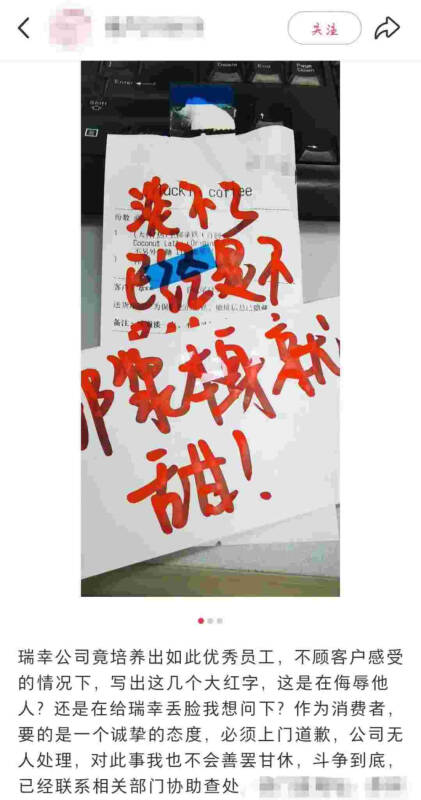 关注
Enter
Shift
Delete
End
Page
Down
luckin coffee
份数
1
Coconut Latte
备注
装不了
已经是不
椰浆本身就
甜！
瑞幸公司竟培养出如此优秀员工，不顾客户感受
的情况下，写出这几个大红字，这是在侮辱他
人？还是在给瑞幸丢脸我想问下？作为消费者，
要的是一个诚挚的态度，必须上门道歉，公司无
人处理，对此事我也不会善罢甘休，斗争到底，
已经联系相关部门协助查处